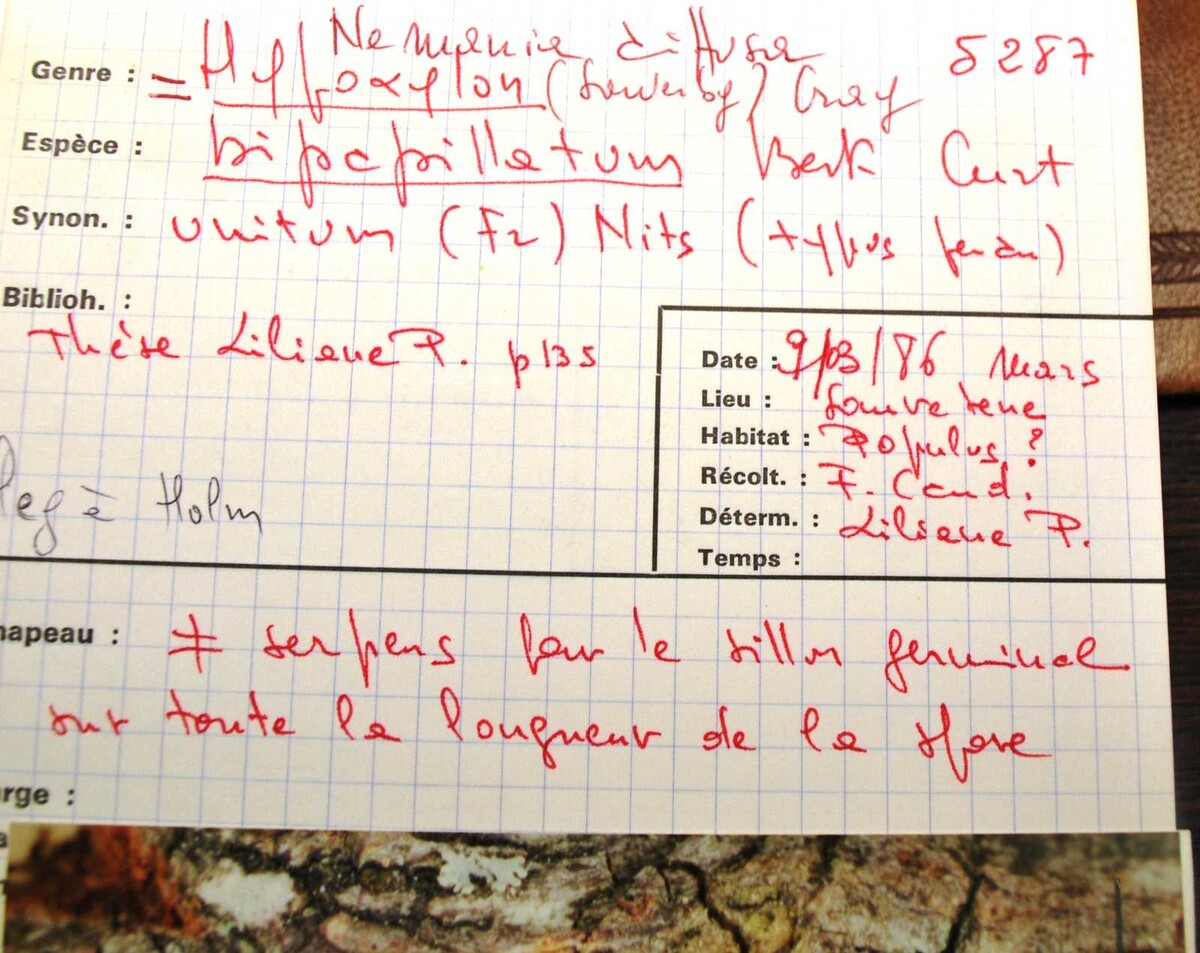 Nemania diffusa 5287
Genre : = Hypoxylon (Sowerby) Gray
Espèce : bipapillatum Berk Curt
Synon. : unitum (Fr) Nits (typus)
Biblioh. :
Thèse Liliane P. p135
Date : 9/03/86 Mars
Lieu : Sauveterre
Habitat : Populus ?
Récolt. : F. Cand.
Déterm. : Liliane P.
Temps :
leg à Holm
hapeau : ≠ serpens par le sillon germinal
sur toute la longueur de la spore
arge :